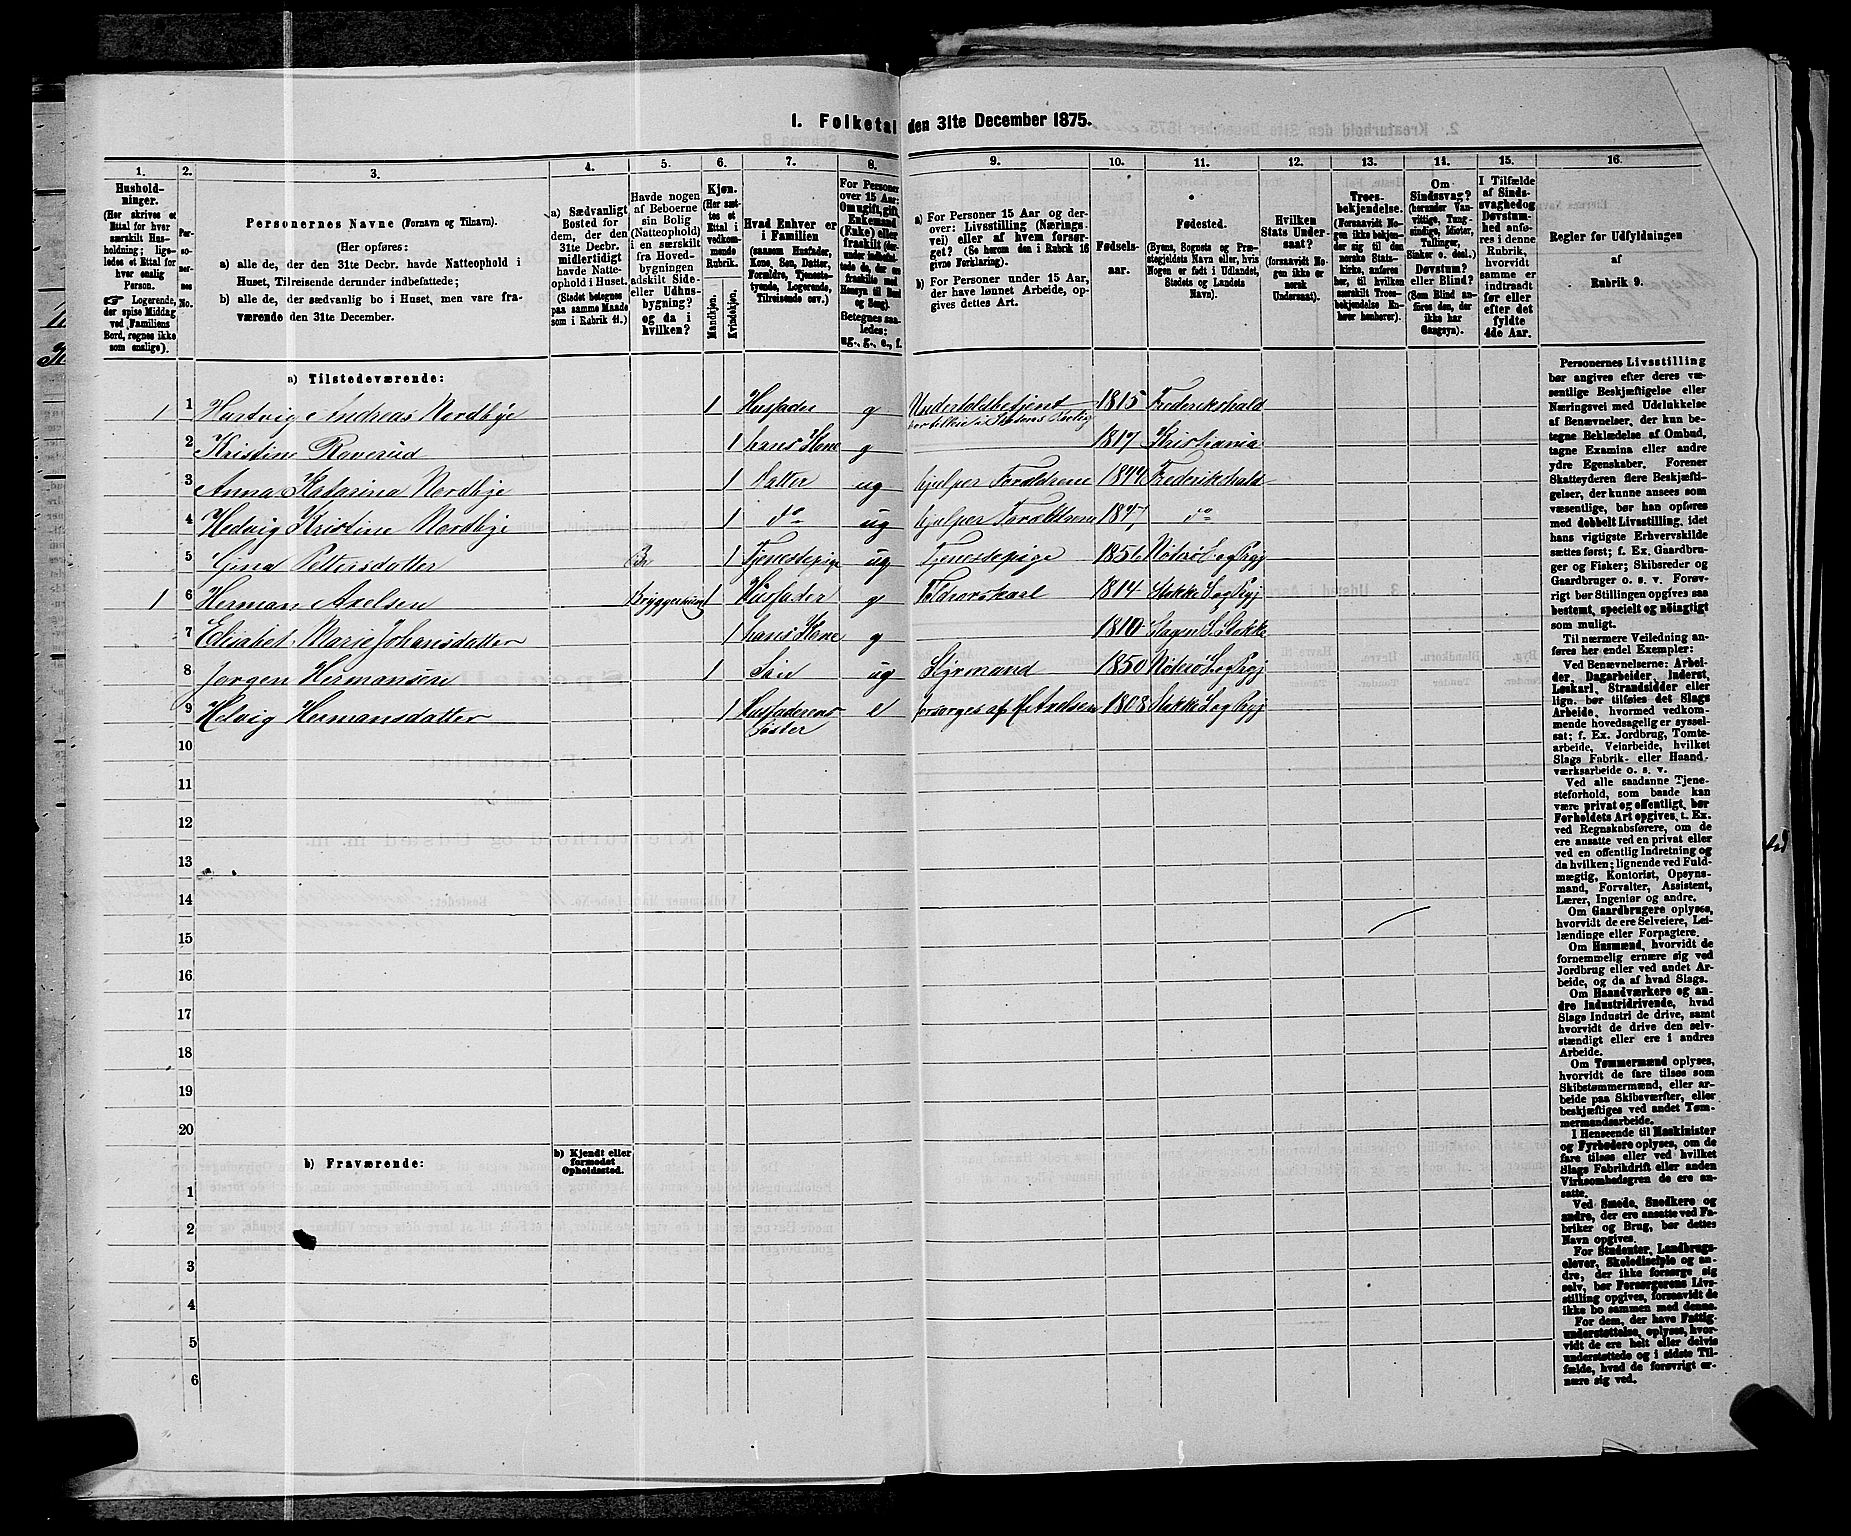 I. Folketal den 31te December 1875.
1. 2. 3. 4. 5. 6. 7. 8. 9. 10. 11. 12. 13. 14. 15. 16.
Hushold-
ninger.
(Her skrives et
Ettal for hver
særskilt Hus-
holdning; lige-
ledes et Ettal for
hver enslig
Person.
☞ Logerende,
der spise Middag
ved Familiens
Bord, regnes ikke
som enslige).
Per-
so-
ner-
nes
No.
Personernes Navne (Fornavn og Tilnavn).
(Her opføres:
a) alle de, der den 31te Decbr. havde Natteophold i
Huset, Tilreisende derunder indbefattede;
b) alle de, der sædvanlig bo i Huset, men vare fra-
værende den 31te December.
a) Sædvanligt
Bosted for
dem, der den
31te Decbr.
midlertidigt
havde Natte-
ophold i Huset.
(Stedet betegnes
paa samme Maade
som i Rubrik 11.)
Havde nogen
af Beboerne
sin Bolig
(Natteophold)
i en særskilt
fra Hoved-
bygningen
adskilt Side-
eller Udhus-
bygning?
og da i
hvilken?
Kjøn.
(Her sæt-
tes et
Ettal i
vedkom-
mende
Rubrik.
Mandkjøn.
Kvindekjøn.
Hvad Enhver er
i Familien
(saasom Husfader,
Kone, Søn, Datter,
Forældre, Tjeneste-
tyende, Logerende,
Tilreisende osv.)
For Personer
over 15 Aar:
Om ugift, gift,
Enkemand
(Enke) eller
fraskilt (der-
under indbefat-
tede de, der ere
fraskilte med
Hensyn til Bord
og Seng).
Betegnes saa-
ledes:
ug., g., e., f.
a) For Personer 15 Aar og der-
over: Livsstilling (Nærings-
vei) eller af hvem forsør-
get? (Se herom den i Rubrik 16
givne Forklaring).
b) For Personer under 15 Aar,
der have lønnet Arbeide, op-
gives dettes Art.
Fødsels-
aar.
Fødested.
(Byens, Sognets og Præ-
stegjeldets Navn eller, hvis
Nogen er født i Udlandet,
Stedets og Landets
Navn).
Hvilken
Stats Under-
saat?
(forsaavidt No-
gen ikke er
norsk
Undersaat).
Troes-
bekjendelse.
(Forsaavidt No-
gen ikke bekjen-
der sig til den
norske Stats-
kirke, anføres
her, til hvilken
særskilt Troes-
bekjendelse En-
hver henhører).
Om
Sindssvag?
(herunder Van-
vittige, Tung-
sindige, Idioter,
Tullinger,
Sinker o. desl.)
Døvstum?
eller Blind?
(Som Blind an-
føres den, der
ikke har
Gangsyn).
I Tilfælde
af Sinds-
svaghed og
Døvstum-
hed anfø-
res i denne
Rubrik,
hvorvidt
samme er
indtraadt
før eller
efter det
fyldte
4de Aar.
Regler for Udfyldningen
af
Rubrik 9.
a) Tilstedeværende:
1 1 Hartvig Andreas Nordbye 1 Husfader g Undertoldbetjent 1815 Frederikshald
2 Kristine Raverud 1 hans Kone g 1817 Kristiania
3 Anna Katarina Nordbye 1 Datter ug hjelper Forældrene 1844 Frederikshald
4 Hedvig Kristine Nordbye 1 do ug hjelper Forældrene 1847 do
5 Gina Pettersdatter 1 Tjenestepige ug Tjenestepige 1856 Nøterø S og Prgj
1 6 Herman Axelsen Bryggerhuset 1 Husfader g Toldrorskarl 1814 Stokke S og Prgj
7 Elisabet Marie Johansdatter 1 hans Kone g 1810 Slagen S Stokke
8 Jørgen Hermansen 1 Søn ug Styrmand 1850 Nøterø S og Prgj
9 Helvig Hermansdatter 1 Husfaderens e forsørges af H Axelsen 1808 Stokke S og Prgj
Søster
10
11
12
13
14
15
16
17
18
19
20
b) Fraværende:
b) Kjendt eller
formodet
Opholdssted.
1
2
3
4
5
6
Personernes Livsstilling
bør angives efter deres væ-
sentlige Beskjæftigelse eller
Næringsvei med Udelukkelse
af Benævnelser, der kun be-
tegne Beklædelse af Ombud,
tagne Examina eller andre
ydre Egenskaber. Forener
Skatteyderen flere Beskjæfti-
gelser, der kunne ansees som
væsentlige, bør han opføres
med dobbelt Livsstilling, idet
hans vigtigste Erhvervskilde
sættes først; f. Ex. Gaardbru-
ger og Fisker; Skibsreder og
Gaardbruger o. s. v. Forøv-
rigt bør Stillingen opgives saa
bestemt, specielt og nøiagtigt
som muligt.
Til nærmere Veiledning an-
føres her endel Exempler:
Ved Benævnelserne: Arbei-
der, Dagarbeider, Inderst,
Løskarl, Strandsidder eller
lign. bør tilføies det Slags
Arbeide, hvormed vedkom-
mende hovedsagelig er syssel-
sat; f. Ex. Jordbrug, Tomte-
arbeide, Veiarbeide, hvilket
Slags Fabrik- eller Haand-
værksarbeide o. s. v.
Ved alle saadanne Tjene-
steforhold, som baade kan
være privat og offentligt, bør
Forholdets Art opgives, t. Ex.
ved Regnskabsførere, om de
ere ansatte ved en privat eller
ved en offentlig Indretning og
da hvilken; lignende ved Fuld-
mægtig, Kontorist, Opsyns-
mand, Forvalter, Assistent,
Lærer, Ingeniør og andre.
Om Gaardbrugere oplyses,
hvorvidt de ere Selveiere, Lei-
lændinge eller Forpagtere.
Om Husmænd, hvorvidt de
fornemmelig ernære sig ved
Jordbrug eller ved andet Ar-
beide, og da af hvad Slags.
Om Haandværkere og an-
dre Industridrivende, hvad
Slags Industri de drive, samt
hvorvidt de drive den selv-
stændigt eller ere i andres
Arbeide.
Om Tømmermænd oplyses,
hvorvidt de fare tilsøs som
Skibstømmermænd, eller ar-
beide paa Skibsværfter, eller
beskjæftiges ved andet Tøm-
mermandsarbeide.
I Henseende til Maskinister
og Fyrbødere oplyses, om de
fare tilsøs eller ved hvilket
Slags Fabrikdrift eller anden
Virksomhedsgren de ere an-
satte.
Ved Smede, Snedkere og
andre, der ere ansatte ved Fa-
briker og Brug, bør dettes
Navn opgives.
For Studenter, Landbrugs-
elever, Skoledisciple og an-
dre, der ikke forsørge sig
selv, bør Forsørgerens Livs-
stilling opgives, forsaavidt de
ikke bo sammen med denne.
For dem, der have Fattig-
understøttelse, oplyses, hvor-
vidt de ere helt eller delvis
understøttede og i sidste Til-
fælde, hvad de forøvrigt er-
nære sig ved.